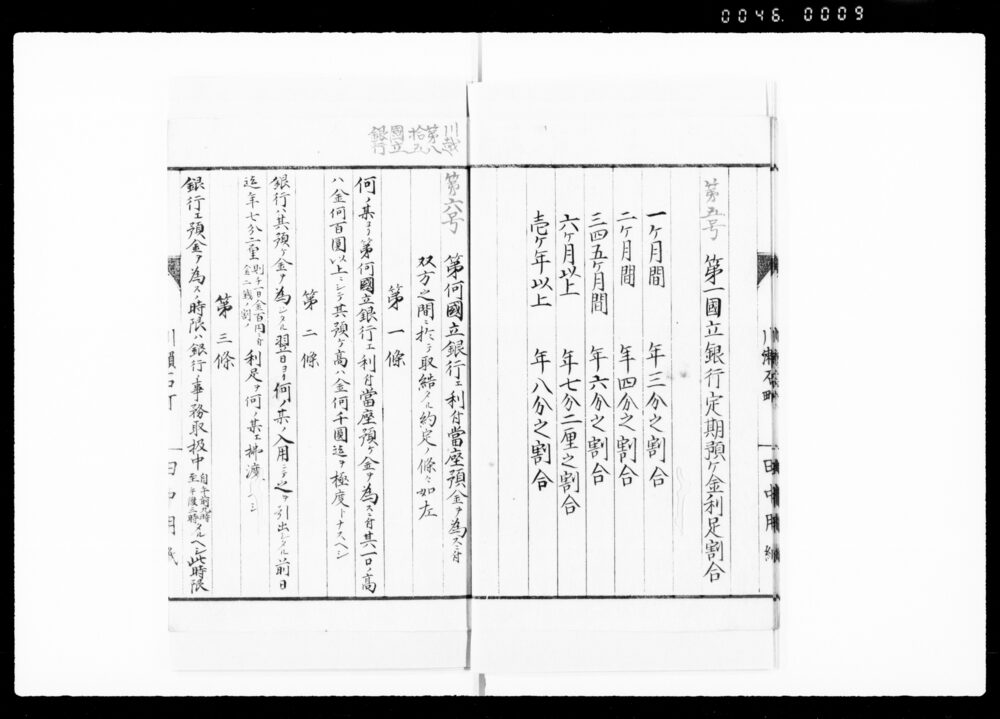 0046. 0009
第五号 第一國立銀行定期預ケ金利足割合
一ケ月間 年三分之割合
二ケ月間 年四分之割合
三四五ケ月間 年六分之割合
六ケ月以上 年七分二厘之割合
壱ケ年以上 年八分之割合
川越
第八
拾五
國立
銀行
第六号 第何國立銀行エ利付當座預金ヲ為スニ付
双方之間ニ於テ取結タル約定ノ條々如左
第一條
何ノ某ヨリ第何國立銀行エ利付當座預ケ金ヲ為スニ付其一口ノ高
ハ金何百圓以上ニシテ其預ケ高ハ金何千圓迄ヲ極度トナスヘシ
第二條
銀行ハ其預ケ金ヲ為シタル翌日ヨリ何ノ某ノ入用ニテ之ヲ引出シタル前日
迄年七分二厘 則チ一日金百円ニ付金二銭ノ割 利足ヲ何ノ某エ拂渡スヘシ
第三條
銀行エ預金ヲ為スノ時限ハ銀行ノ事務取扱中 自午前九時至午後三時 タルヘシ此時限